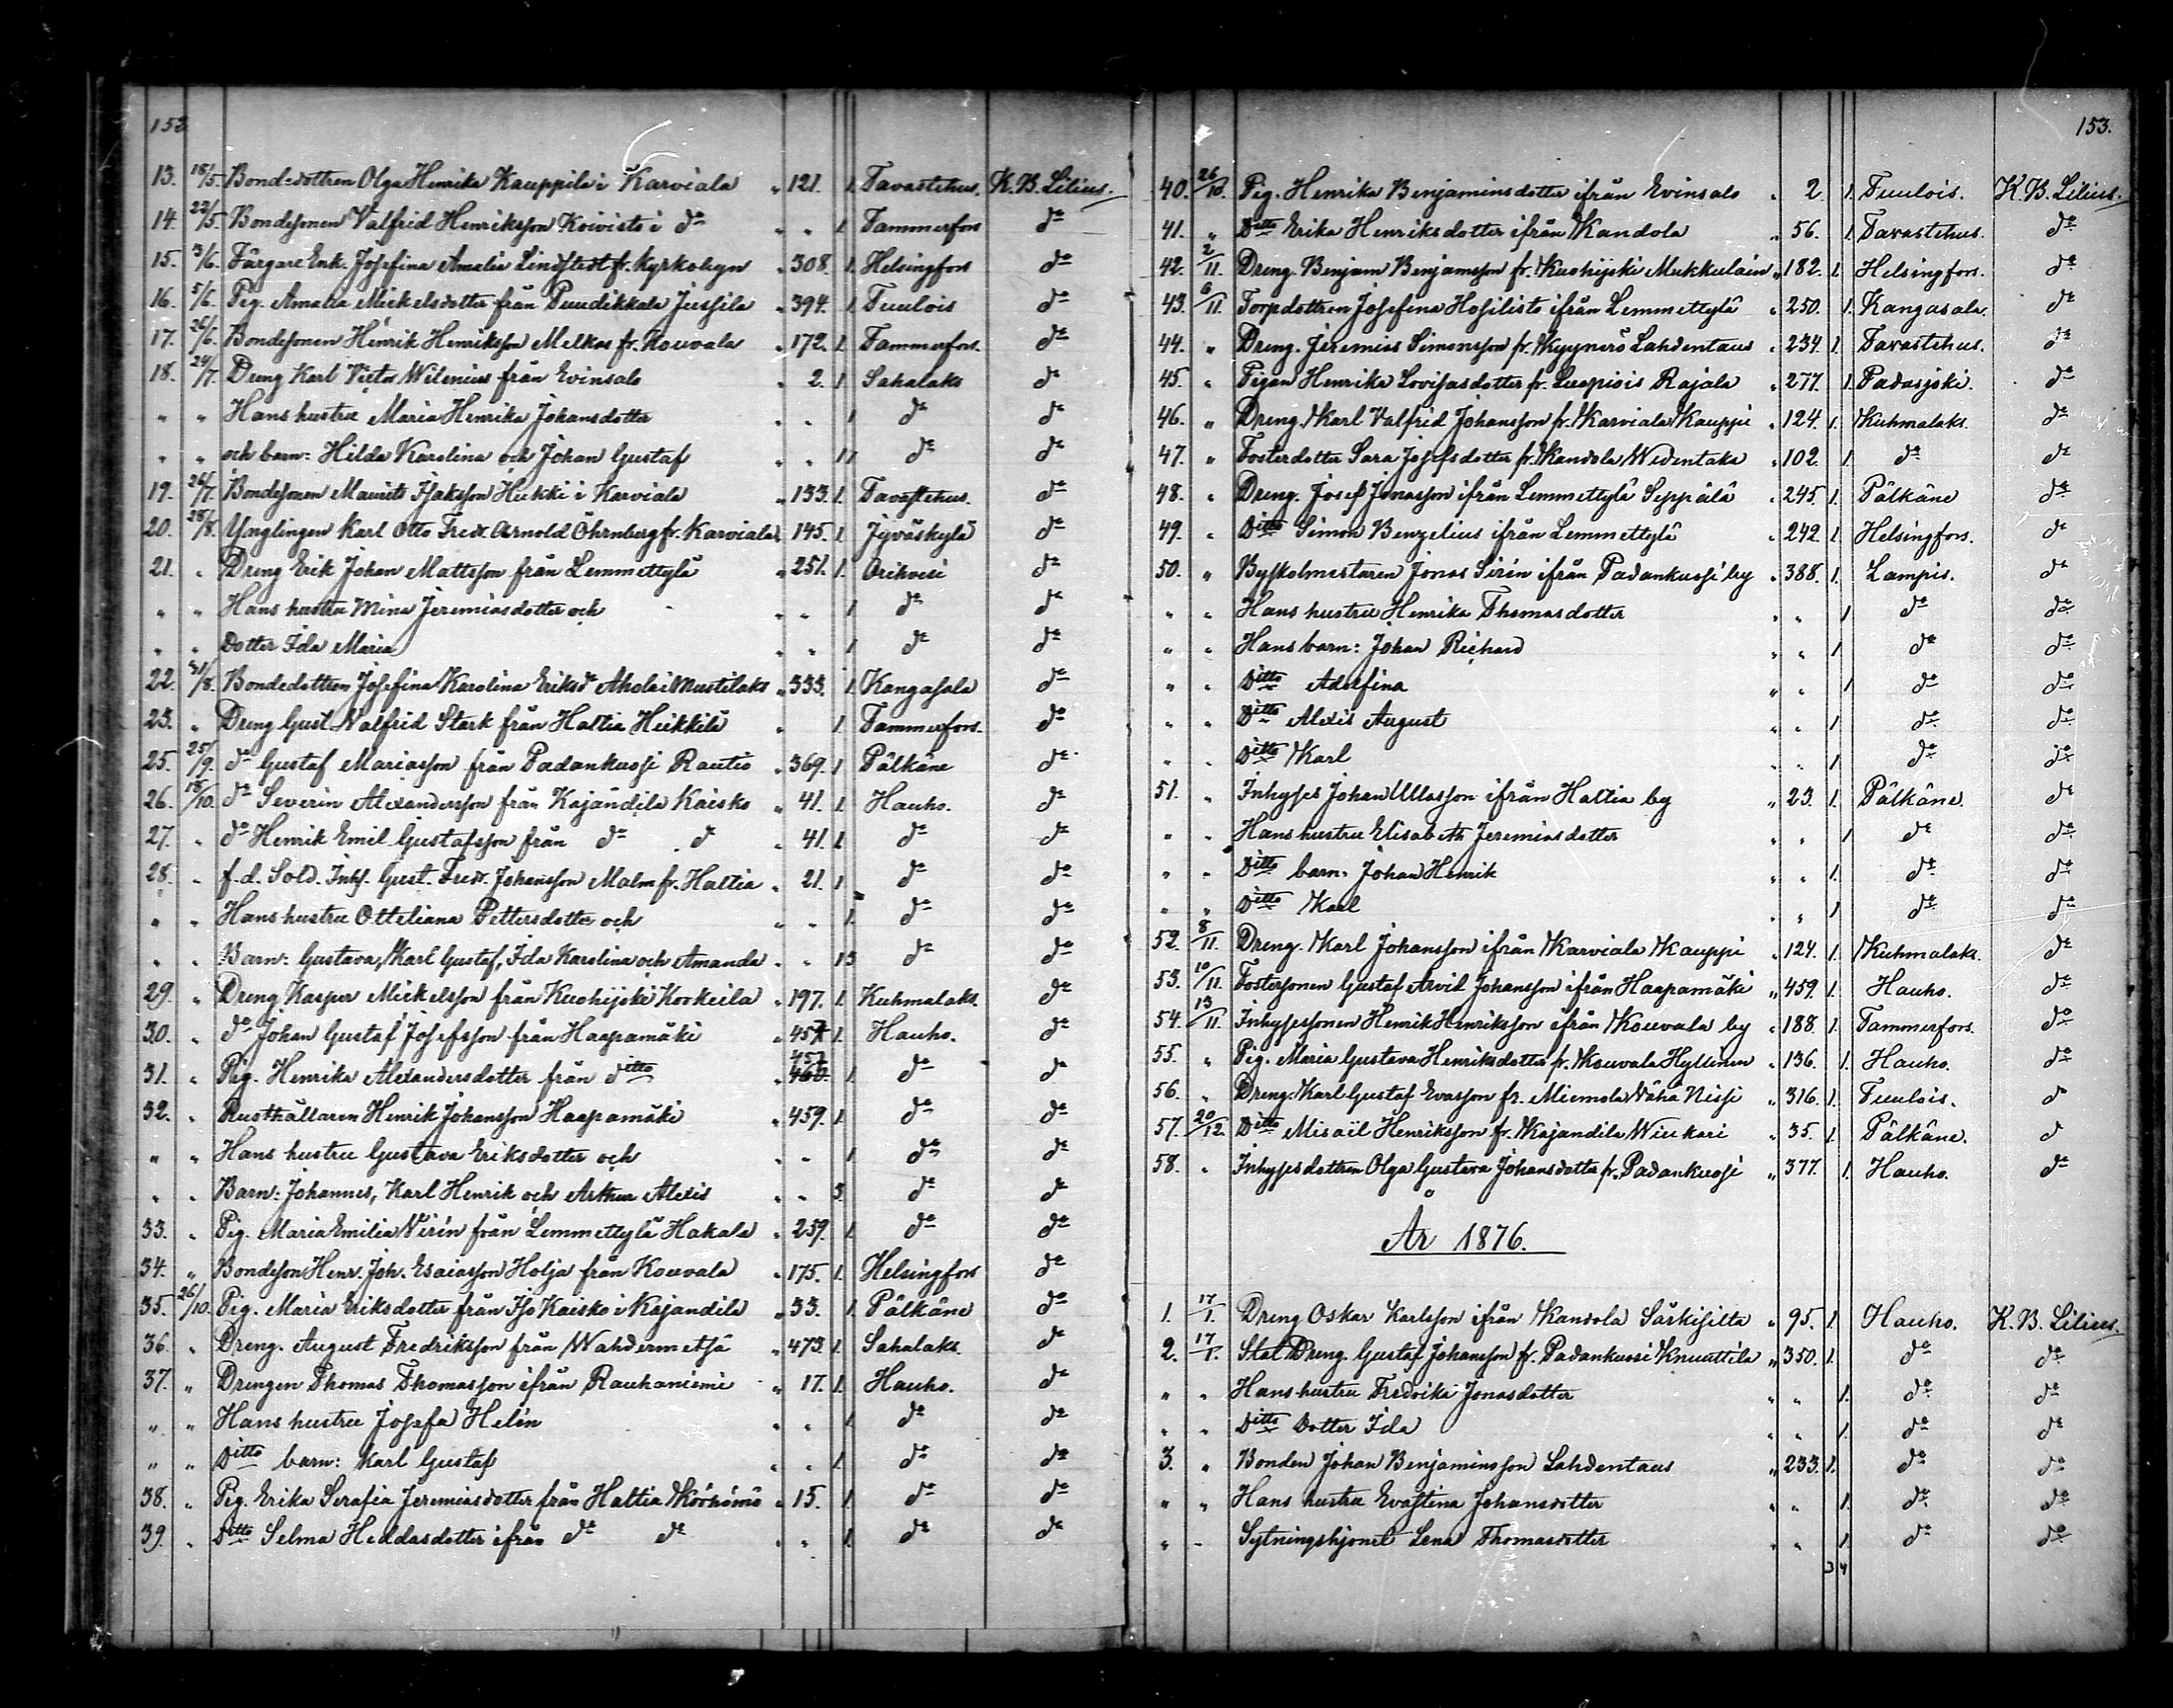 152.
13. 18/5. Bondedottren Olga Henrika Kauppila i Karviala " 121. 1. Tavastehus. K. B. Lilius.
14. 22/5. Bondesonen Valfrid Henriksson Koivisto i do " " 1 Tammerfors do
15. 3/6. Färgare Enk. Josefina Amalia Lindstedt fr. Kyrkobyn " 308. 1. Helsingfors do
16. 5/6. Pig. Amalia Mickelsdotter från Puudikkala Jussila " 394. 1 Tuulois do
17. 26/6. Bondesonen Henrik Henriksson Melkas fr. Kouvala " 172. 1. Tammerfors. do
18. 24/7. Dreng Karl Victor Wilenius från Evinsalo " 2. 1 Sahalaks do
" " Hans hustru Maria Henrika Johansdotter " " 1 do do
" " och barn: Hilda Karolina och Johan Gustaf " " 1 1 do do
19. 26/7. Bondesonen Maurits Isaksson Heikki i Karviala " 133. 1. Tavastehus. do
20. 28/8. Ynglingen Karl Otto Fredr. Arnold Öhrnberg fr. Karviala " 145. 1 Jyväskylä do
21. " Dreng Erik Johan Mattsson från Lemmettylä " 251. 1. Orihvesi do
" " Hans hustru Mina Jeremiasdotter och " " 1 do do
" " Dotter Ida Maria " " 1 do do
22. 31/8. Bondedottren Josefina Karolina Eriksdr Ahola i Mustilaks " 333. 1. Kangasala do
23. " Dreng Gust. Valfrid Stark från Haltia Heikkilä " 1 Tammerfors. do
25. 25/9. do Gustaf Mariasson från Padankuosi Rautio " 369. 1 Pälkäne do
26. 18/10. do Severin Alexandersson från Kajandila Kaisko " 41. 1. Hauho. do
27. " do Henrik Emil Gustafsson från do do " 41. 1 do do
28. " f. d. Sold. Inhs. Gust. Fredr. Johansson Malm fr. Haltia " 21. 1 do do
" " Hans hustru Otteliana Pettersdotter och " " 1. do do
" " Barn: Gustava, Karl Gustaf, Ida Karolina och Amanda " " 1 3 do do
29. " Dreng Kasper Mickelsson från Kuohijoki Korkeila " 197. 1. Kuhmalaks. do
30. " do Johan Gustaf Josefsson från Haapamäki " 457 1. Hauho. do
31. " Pig. Henrika Alexandersdotter från ditto " 457 460. 1. do do
32. " Rusthållaren Henrik Johansson Haapamäki " 459. 1. do do
" " Hans hustru Gustava Eriksdotter och " " 1 do do
" " Barn: Johannes, Karl Henrik och Arthur Alexis " " 3. do do
33. " Pig. Maria Emilia Virén från Lemmettylä Hakala " 259. 1. do do
34. " Bondeson Henr. Joh. Esaiasson Holja från Kouvala " 175. 1. Helsingfors do
35. 26/10. Pig. Maria Eriksdotter från Iso Kaisko i Kajandila " 33. 1. Pälkäne do
36. " Dreng. August Fredriksson från Wahdermetsä " 473. 1. Sahalaks. do
37. " Drengen Thomas Thomasson ifrån Rauhaniemi " 17. 1. Hauho. do
" " Hans hustru Josefa Helin " " 1. do do
" " Ditto barn: Karl Gustaf " " 1 do do
38. " Pig. Erika Serafia Jeremiasdotter från Haltia Körhömö " 15. 1. do do
39. " Ditto Selma Heddasdotter ifrån do do " " 1. do do
153.
40. 26/10. Pig. Henrika Benjaminsdotter ifrån Evinsalo " 2 1. Tuulois. K. B. Lilius.
41. " Ditto Erika Henriksdotter ifrån Kandola " 56. 1. Tavastehus. do
42. 2/11. Dreng. Benjam Benjamsson fr. Kuohijoki Mukkulain " 182. 1. Helsingfors. do
43. 6/11. Torpdottren Josefina Hosilisto ifrån Lemmettylä " 250. 1. Kangasala. do
44. " Dreng. Jeremias Simonsson fr. Kyynerö Lahdentaus " 234. 1. Tavastehus. do
45. " Pigan Henrika Lovisasdotter fr. Luopiois Rajala " 277. 1. Padasjoki. do
46. " Dreng. Karl Valfrid Johansson fr. Karviala Kauppi " 124. 1. Kuhmalaks. do
47. " Fosterdotter Sara Josefsdotter fr. Kandola Widentaka " 102. 1. do do
48. " Dreng. Josef Jonasson ifrån Lemmettylä Seppälä " 245. 1. Pälkäne do
49. " Ditto Simon Benzelius ifrån Lemmettylä " 242. 1. Helsingfors. do
50. " Byskolmestaren Jonas Sirén ifrån Padankuosi by " 388. 1. Lampis. do
" " Hans hustru Henrika Thomasdotter " " 1 do do
" " Hans barn: Johan Richard " " 1 do do
" " Ditto Adolfina " " 1 do do
" " Ditto Alexis August " " 1. do do
" " Ditto Karl " " 1 do do
51. " Inhyses Johan Ullasson ifrån Haltia by " 23. 1. Pälkäne. do
" " Hans hustru Elisabeth Jeremiasdotter " " 1 do do
" " Ditto barn. Johan Henrik " " 1. do do
" " Ditto Karl " " 1 do do
52. 8/11. Dreng. Karl Johansson ifrån Karviala Kauppi " 124. 1. Kuhmalaks. do
53. 10/11. Fostersonen Gustaf Arvid Johansson ifrån Haapamäki " 459. 1. Hauho. do
54. 13/11. Inhysessonen Henrik Henriksson ifrån Kouvala by " 188. 1. Tammerfors. do
55. " Pig. Maria Gustava Henriksdotter fr. Kouvala Hyllinen " 136. 1. Hauho. do
56. " Dreng. Karl Gustaf Evasson fr. Miemola Vähä Nissi " 316. 1. Tuulois. do
57. 20/12. Ditto Misaïl Henriksson fr. Kajandila Wiukari " 35. 1. Pälkäne. do
58. " Inhysesdottren Olga Gustava Johansdotter fr. Padankuosi " 377. 1. Hauho. do
År 1876.
1. 17/1. Dreng Oskar Karlsson ifrån Kandola Särkisilta " 95. 1. Hauho. K. B. Lilius.
2. 17/1. Stat Dreng. Gustaf Johansson fr. Padankuosi Knuuttila " 350. 1. do do
" " Hans hustru Fredrika Jonasdotter " " 1. do do
" " Ditto Dotter Ida " " 1. do do
3. " Bonden Johan Benjaminsson Lahdentaus " 233. 1. do do
" " Hans hustru Evastina Johansdotter " " 1. do do
" " Sytningshjonet Lena Thomasdotter " " 1. do do
3 4